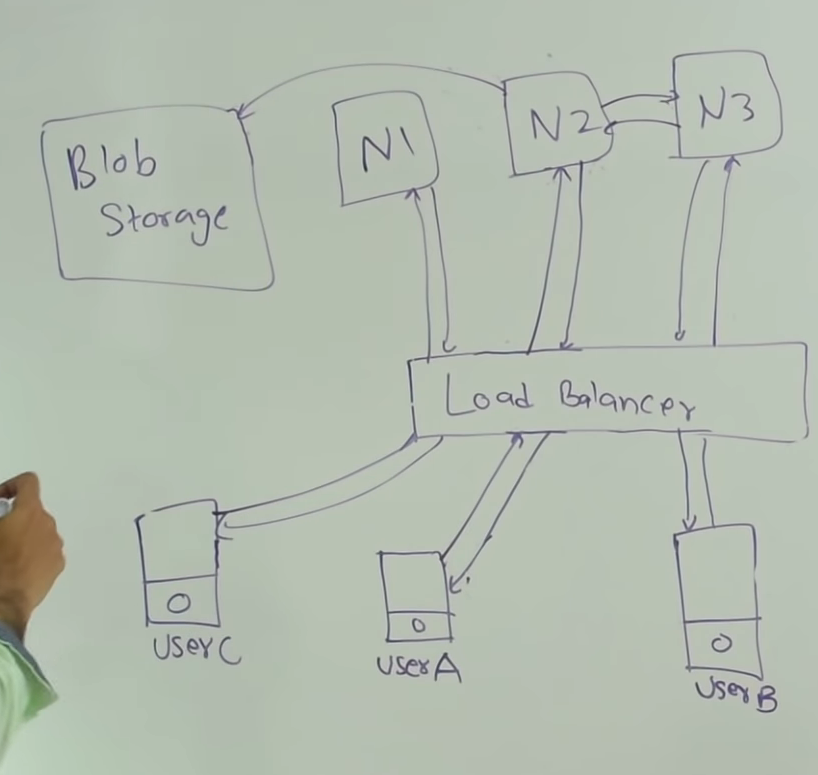 Blob
Storage
N1
N2
N3
Load Balancer
User C
User A
User B